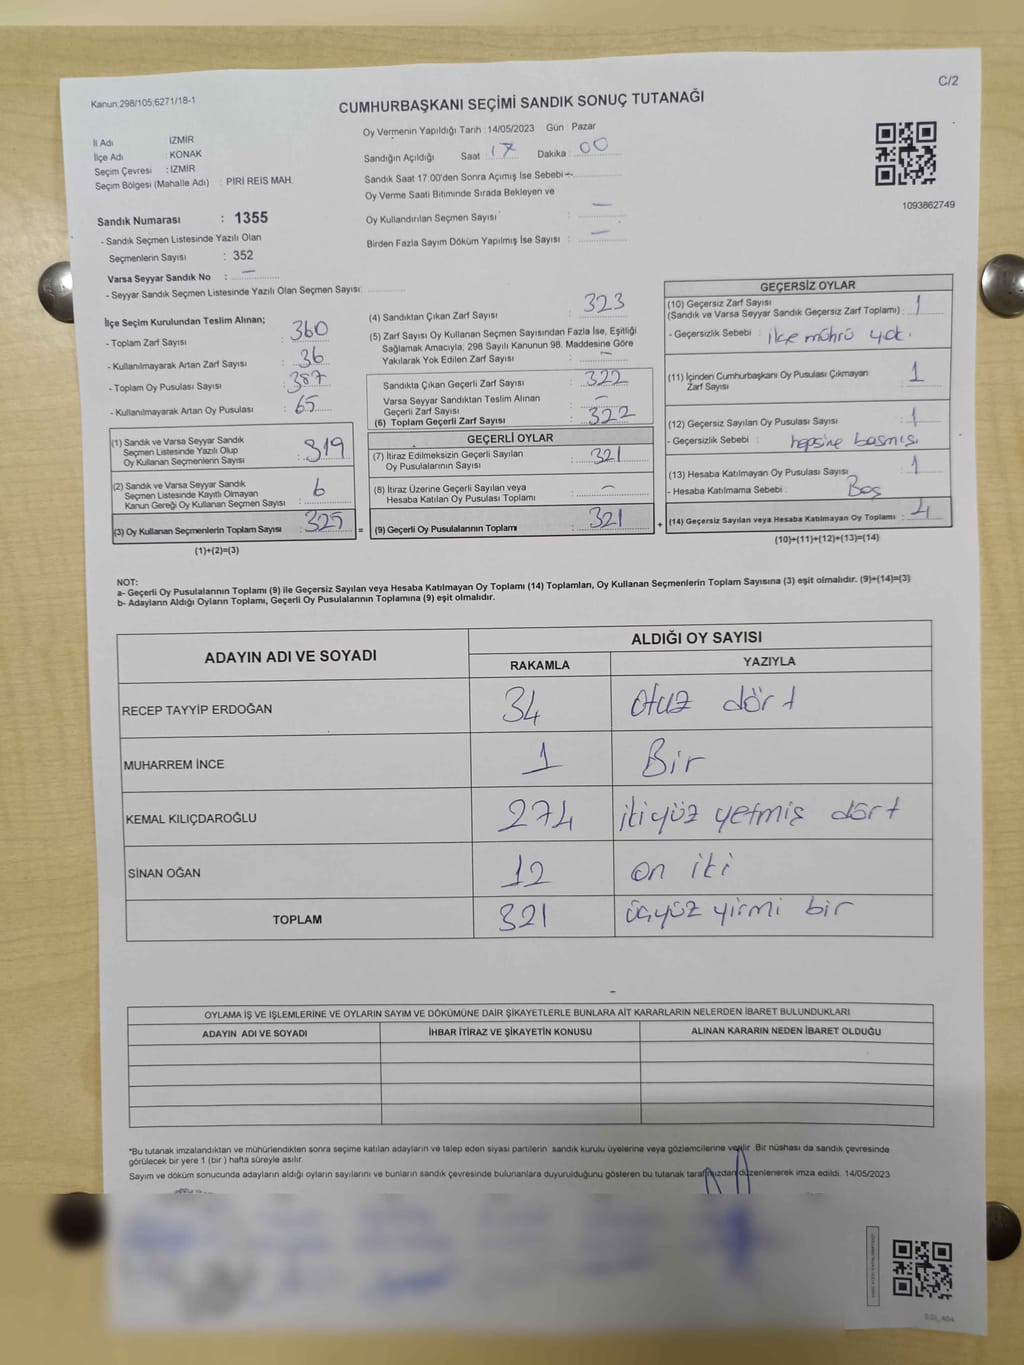 C/2
Kanun,298/105,6271/18-1
CUMHURBAŞKANI SEÇİMİ SANDIK SONUÇ TUTANAĞI
İl Adı İZMİR
İlçe Adı KONAK
Seçim Çevresi : İZMİR
Seçim Bölgesi (Mahalle Adı) : PİRİ REİS MAH.
Oy Vermenin Yapıldığı Tarih : 14/05/2023 Gün : Pazar
Sandığın Açıldığı Saat 17 Dakika : 00
Sandık Saat 17:00'den Sonra Açımış İse Sebebi –
Oy Verme Saati Bitiminde Sırada Bekleyen ve
Oy Kullandırılan Seçmen Sayısı : –
Birden Fazla Sayım Döküm Yapılmış İse Sayısı : –
1093862749
Sandık Numarası : 1355
- Sandık Seçmen Listesinde Yazılı Olan
Seçmenlerin Sayısı : 352
Varsa Seyyar Sandık No : –
- Seyyar Sandık Seçmen Listesinde Yazılı Olan Seçmen Sayısı:
İlçe Seçim Kurulundan Teslim Alınan;
- Toplam Zarf Sayısı : 360
- Kullanılmayarak Artan Zarf Sayısı : 36
- Toplam Oy Pusulası Sayısı : 387
- Kullanılmayarak Artan Oy Pusulası : 65
(1) Sandık ve Varsa Seyyar Sandık
Seçmen Listesinde Yazılı Olup
Oy Kullanan Seçmenlerin Sayısı : 319
(2) Sandık ve Varsa Seyyar Sandık
Seçmen Listesinde Kayıtlı Olmayan
Kanun Gereği Oy Kullanan Seçmen Sayısı : 6
(3) Oy Kullanan Seçmenlerin Toplam Sayısı : 325 =
(1)+(2)=(3)
(4) Sandıktan Çıkan Zarf Sayısı : 323
(5) Zarf Sayısı Oy Kullanan Seçmen Sayısından Fazla İse, Eşitliği
Sağlamak Amacıyla; 298 Sayılı Kanunun 98. Maddesine Göre
Yakılarak Yok Edilen Zarf Sayısı : –
Sandıkta Çıkan Geçerli Zarf Sayısı : 322
Varsa Seyyar Sandıktan Teslim Alınan
Geçerli Zarf Sayısı : –
(6) Toplam Geçerli Zarf Sayısı : 322
GEÇERLİ OYLAR
(7) İtiraz Edilmeksizin Geçerli Sayılan
Oy Pusulalarının Sayısı : 321
(8) İtiraz Üzerine Geçerli Sayılan veya
Hesaba Katılan Oy Pusulaları Toplamı : –
(9) Geçerli Oy Pusulalarının Toplamı : 321 +
GEÇERSİZ OYLAR
(10) Geçersiz Zarf Sayısı
(Sandık ve Varsa Seyyar Sandık Geçersiz Zarf Toplamı) : 1
- Geçersizlik Sebebi : ilçe mührü yok.
(11) İçinden Cumhurbaşkanı Oy Pusulası Çıkmayan
Zarf Sayısı : 1
(12) Geçersiz Sayılan Oy Pusulası Sayısı : 1
- Geçersizlik Sebebi : hepsine basmış
(13) Hesaba Katılmayan Oy Pusulası Sayısı : 1
- Hesaba Katılmama Sebebi : Boş
(14) Geçersiz Sayılan veya Hesaba Katılmayan Oy Toplamı : 4
(10)+(11)+(12)+(13)=(14)
NOT:
a- Geçerli Oy Pusulalarının Toplamı (9) ile Geçersiz Sayılan veya Hesaba Katılmayan Oy Toplamı (14) Toplamları, Oy Kullanan Seçmenlerin Toplam Sayısına (3) eşit olmalıdır. (9)+(14)=(3)
b- Adayların Aldığı Oyların Toplamı, Geçerli Oy Pusulalarının Toplamına (9) eşit olmalıdır.
ADAYIN ADI VE SOYADI ALDIĞI OY SAYISI
RAKAMLA YAZIYLA
RECEP TAYYİP ERDOĞAN 34 otuz dört
MUHARREM İNCE 1 Bir
KEMAL KILIÇDAROĞLU 274 ikiyüz yetmiş dört
SİNAN OĞAN 12 on iki
TOPLAM 321 üçyüz yirmi bir
OYLAMA İŞ VE İŞLEMLERİNE VE OYLARIN SAYIM VE DÖKÜMÜNE DAİR ŞİKAYETLERLE BUNLARA AİT KARARLARIN NELERDEN İBARET BULUNDUKLARI
ADAYIN ADI VE SOYADI İHBAR İTİRAZ VE ŞİKAYETİN KONUSU ALINAN KARARIN NEDEN İBARET OLDUĞU
*Bu tutanak imzalandıktan ve mühürlendikten sonra seçime katılan adayların ve talep eden siyasi partilerin sandık kurulu üyelerine veya gözlemcilerine verilir. Bir nüshası da sandık çevresinde
görülecek bir yere 1 (bir) hafta süreyle asılır.
Sayım ve döküm sonucunda adayların aldığı oyların sayılarını ve bunların sandık çevresinde bulunanlara duyurulduğunu gösteren bu tutanak tarafımızdan düzenlenerek imza edildi. 14/05/2023